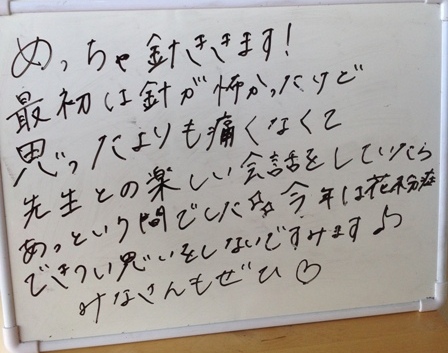 めっちゃ針ききます!
最初は針が怖かったけど
思ったよりも痛くなくて
先生との楽しい会話をしていたら
あっという間でした☆☆今年は花粉症
できつい思いをしないですみます♪
みなさんもぜひ♡